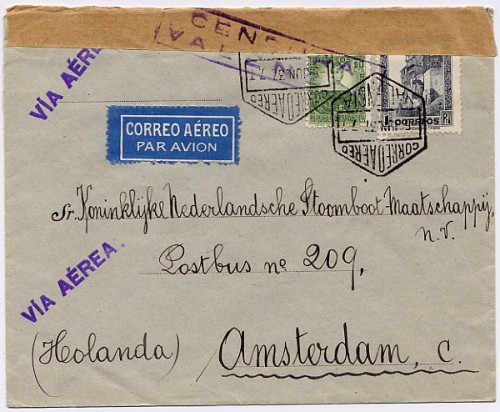 CENSURA
VALENCIA
VIA AÉREA
CORREO AÉREO
PAR AVION
CORREO AEREO
VALENCIA
CORREO AEREO
VALENCIA
CORREOS
Sr. Koninklijke Nederlandsche Stoomboot-Maatschappij,
N.V.
Postbus nº 209,
VIA AÉREA.
(Holanda) Amsterdam, C.